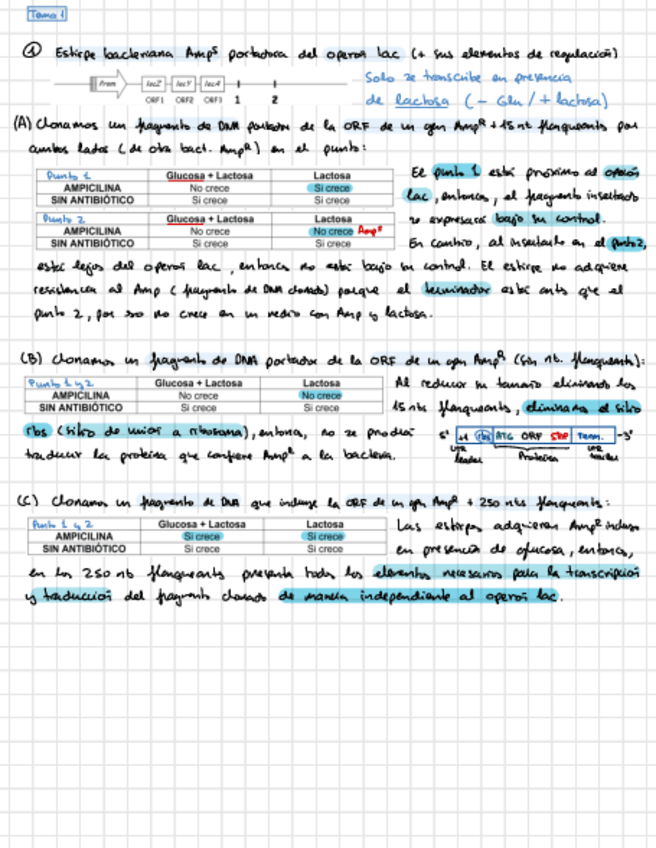 Tema 1
① Estirpe bacteriana Ampˢ portadora del operón lac (+ sus elementos de regulación)
Prom lacZ lacY lacA
ORF1 ORF2 ORF3 1 2
Solo se transcribe en presencia
de lactosa (- Glu / + lactosa)
(A) Clonamos un fragmento de DNA portador de la ORF de un gen Ampᴿ + 15 nt flanqueants por
ambos lados (de otra bact. Ampᴿ) en el punto:
Punto 1 Glucosa + Lactosa Lactosa
AMPICILINA No crece Si crece
SIN ANTIBIÓTICO Si crece Si crece
Punto 2 Glucosa + Lactosa Lactosa
AMPICILINA No crece No crece Ampˢ
SIN ANTIBIÓTICO Si crece Si crece
El punto 1 está próximo al operón
lac, entonces, el fragmento insertado
se expresará bajo su control.
En cambio, al insertarlo en el punto 2,
está lejos del operón lac, entonces no está bajo su control. El estirpe no adquiere
resistencia al Amp (fragmento de DNA clonado) porque el terminador está ants que el
punto 2, por eso no crece en un medio con Amp y lactosa.
(B) Clonamos un fragmento de DNA portador de la ORF de un gen Ampᴿ (sin nt. flanqueants):
Punto 1 y 2 Glucosa + Lactosa Lactosa
AMPICILINA No crece No crece
SIN ANTIBIÓTICO Si crece Si crece
Al reducir su tamaño eliminando los
15 nts flanqueants, eliminamos el sitio
rbs (sitio de unión a ribosoma), entonces, no se podría
traducir la proteína que confiere Ampᴿ a la bacteria.
5' +1 rbs ATG ORF stop Term. -3'
UTR leader Proteína UTR trailer
(C) Clonamos un fragmento de DNA que incluye la ORF de un gen Ampᴿ + 250 nts flanqueants:
Punto 1 y 2 Glucosa + Lactosa Lactosa
AMPICILINA Si crece Si crece
SIN ANTIBIÓTICO Si crece Si crece
Las estirpes adquieren Ampᴿ incluso
en presencia de glucosa, entonces,
en los 250 nts flanqueants presenta todos los elementos necesarios para la transcripción
y traducción del fragmento clonado de manera independiente al operón lac.